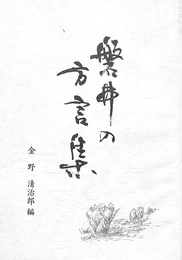 磐井の
方言集
金野清治郎編